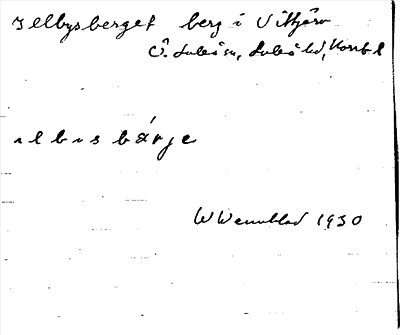 Jelbysberget berg i Vitfjärn
Ö. Luleå sn, Luleå ld, Norrb l
ı l b ı s b ä́ r j e
W Wennblad 1930